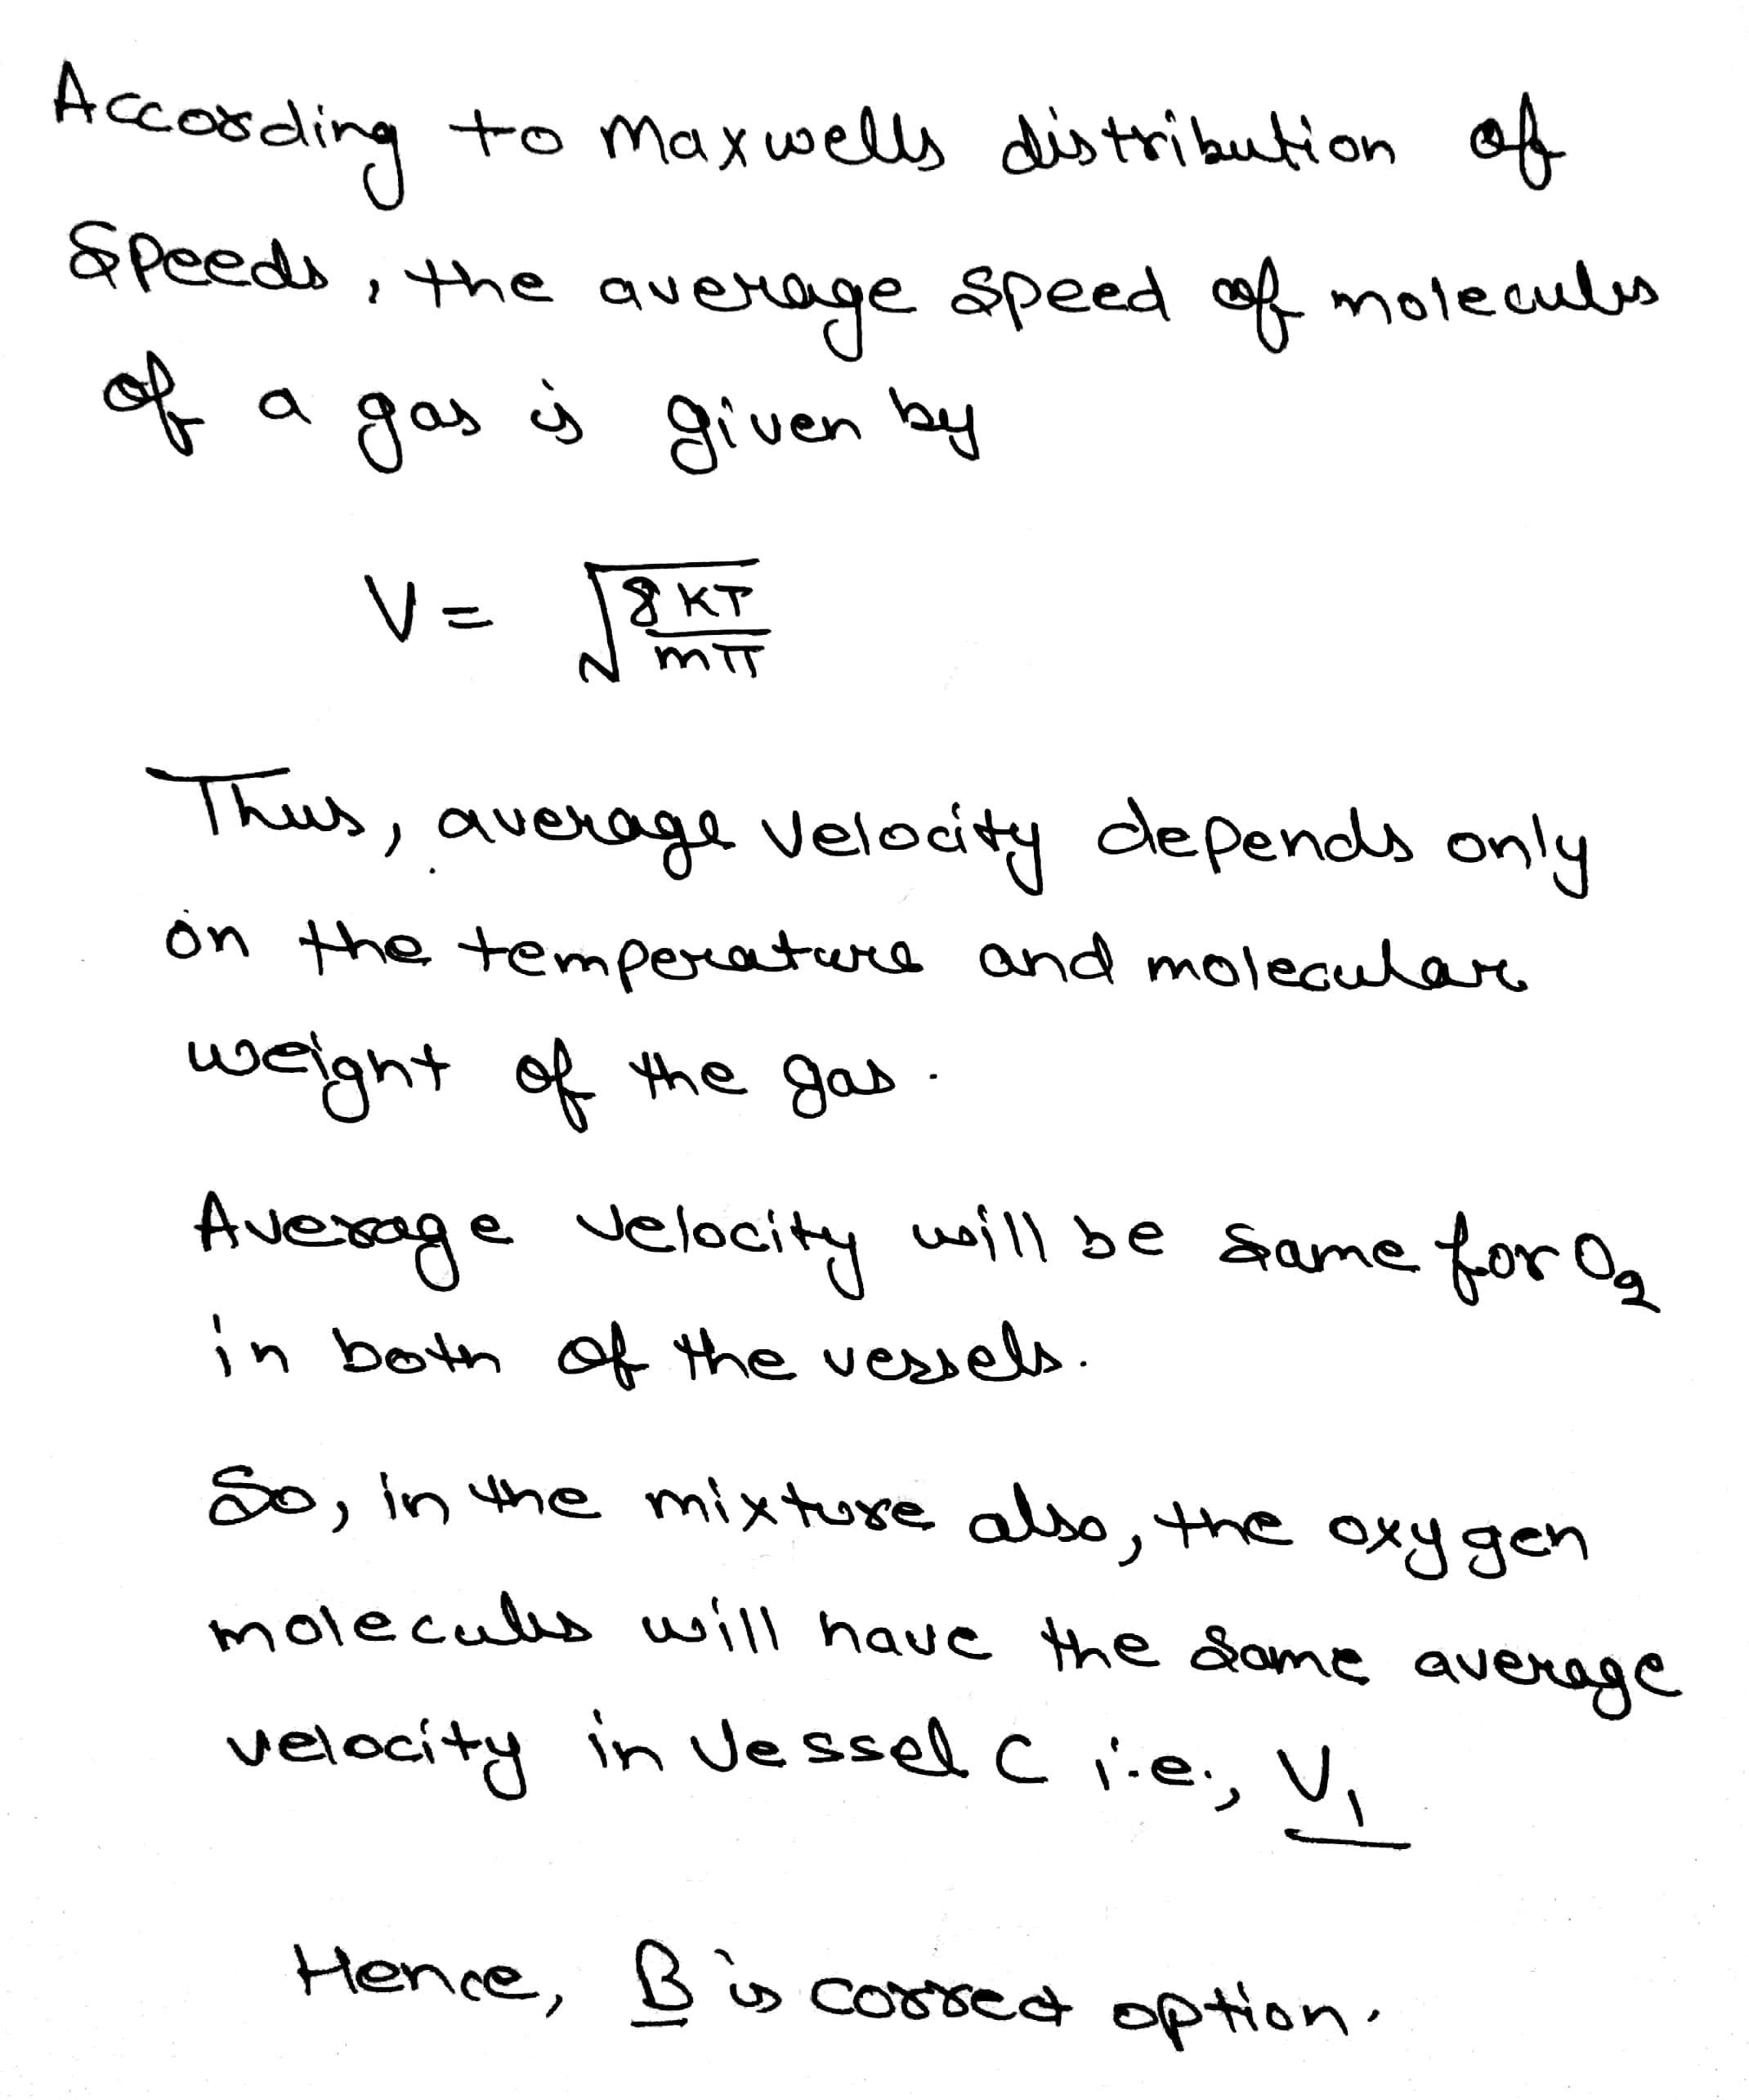 According to Maxwells distribution of
Speeds, the average speed of molecules
of a gas is given by
V = √(8KT/mπ)
Thus, average velocity depends only
on the temperature and molecular
weight of the gas.
Average velocity will be same for O₂
in both of the vessels.
So, in the mixture also, the oxygen
molecules will have the same average
velocity in vessel C i.e., V₁
Hence, B is correct option.